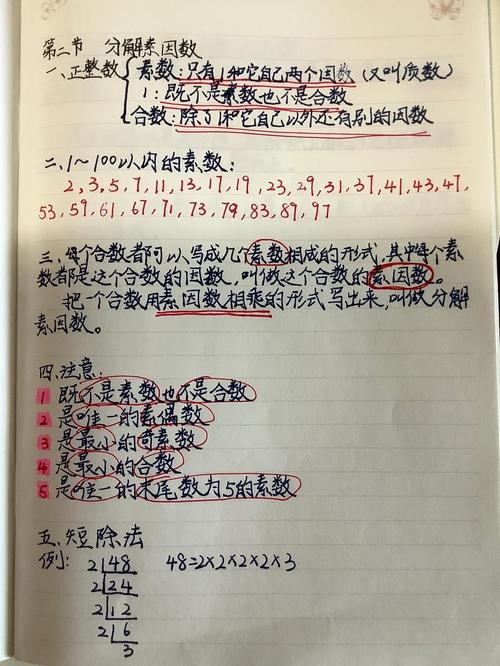 第二节 分解素因数
一、正整数 素数:只有1和它自己两个因数(又叫质数)
1:既不是素数也不是合数
合数:除了1和它自己以外还有别的因数
二、1~100以内的素数:
2,3,5,7,11,13,17,19,23,29,31,37,41,43,47,
53,59,61,67,71,73,79,83,89,97
三、每个合数都可以写成几个素数相成的形式,其中每个素
数都是这个合数的因数,叫做这个合数的素因数。
把一个合数用素因数相乘的形式写出来,叫做分解
素因数。
四.注意:
1 既不是素数也不是合数
2 是唯一的素偶数
3 是最小的奇素数
4 是最小的合数
5 是唯一的末尾数为5的素数
五.短除法
例: 2 48 48=2×2×2×2×3
2 24
2 12
2 6
3